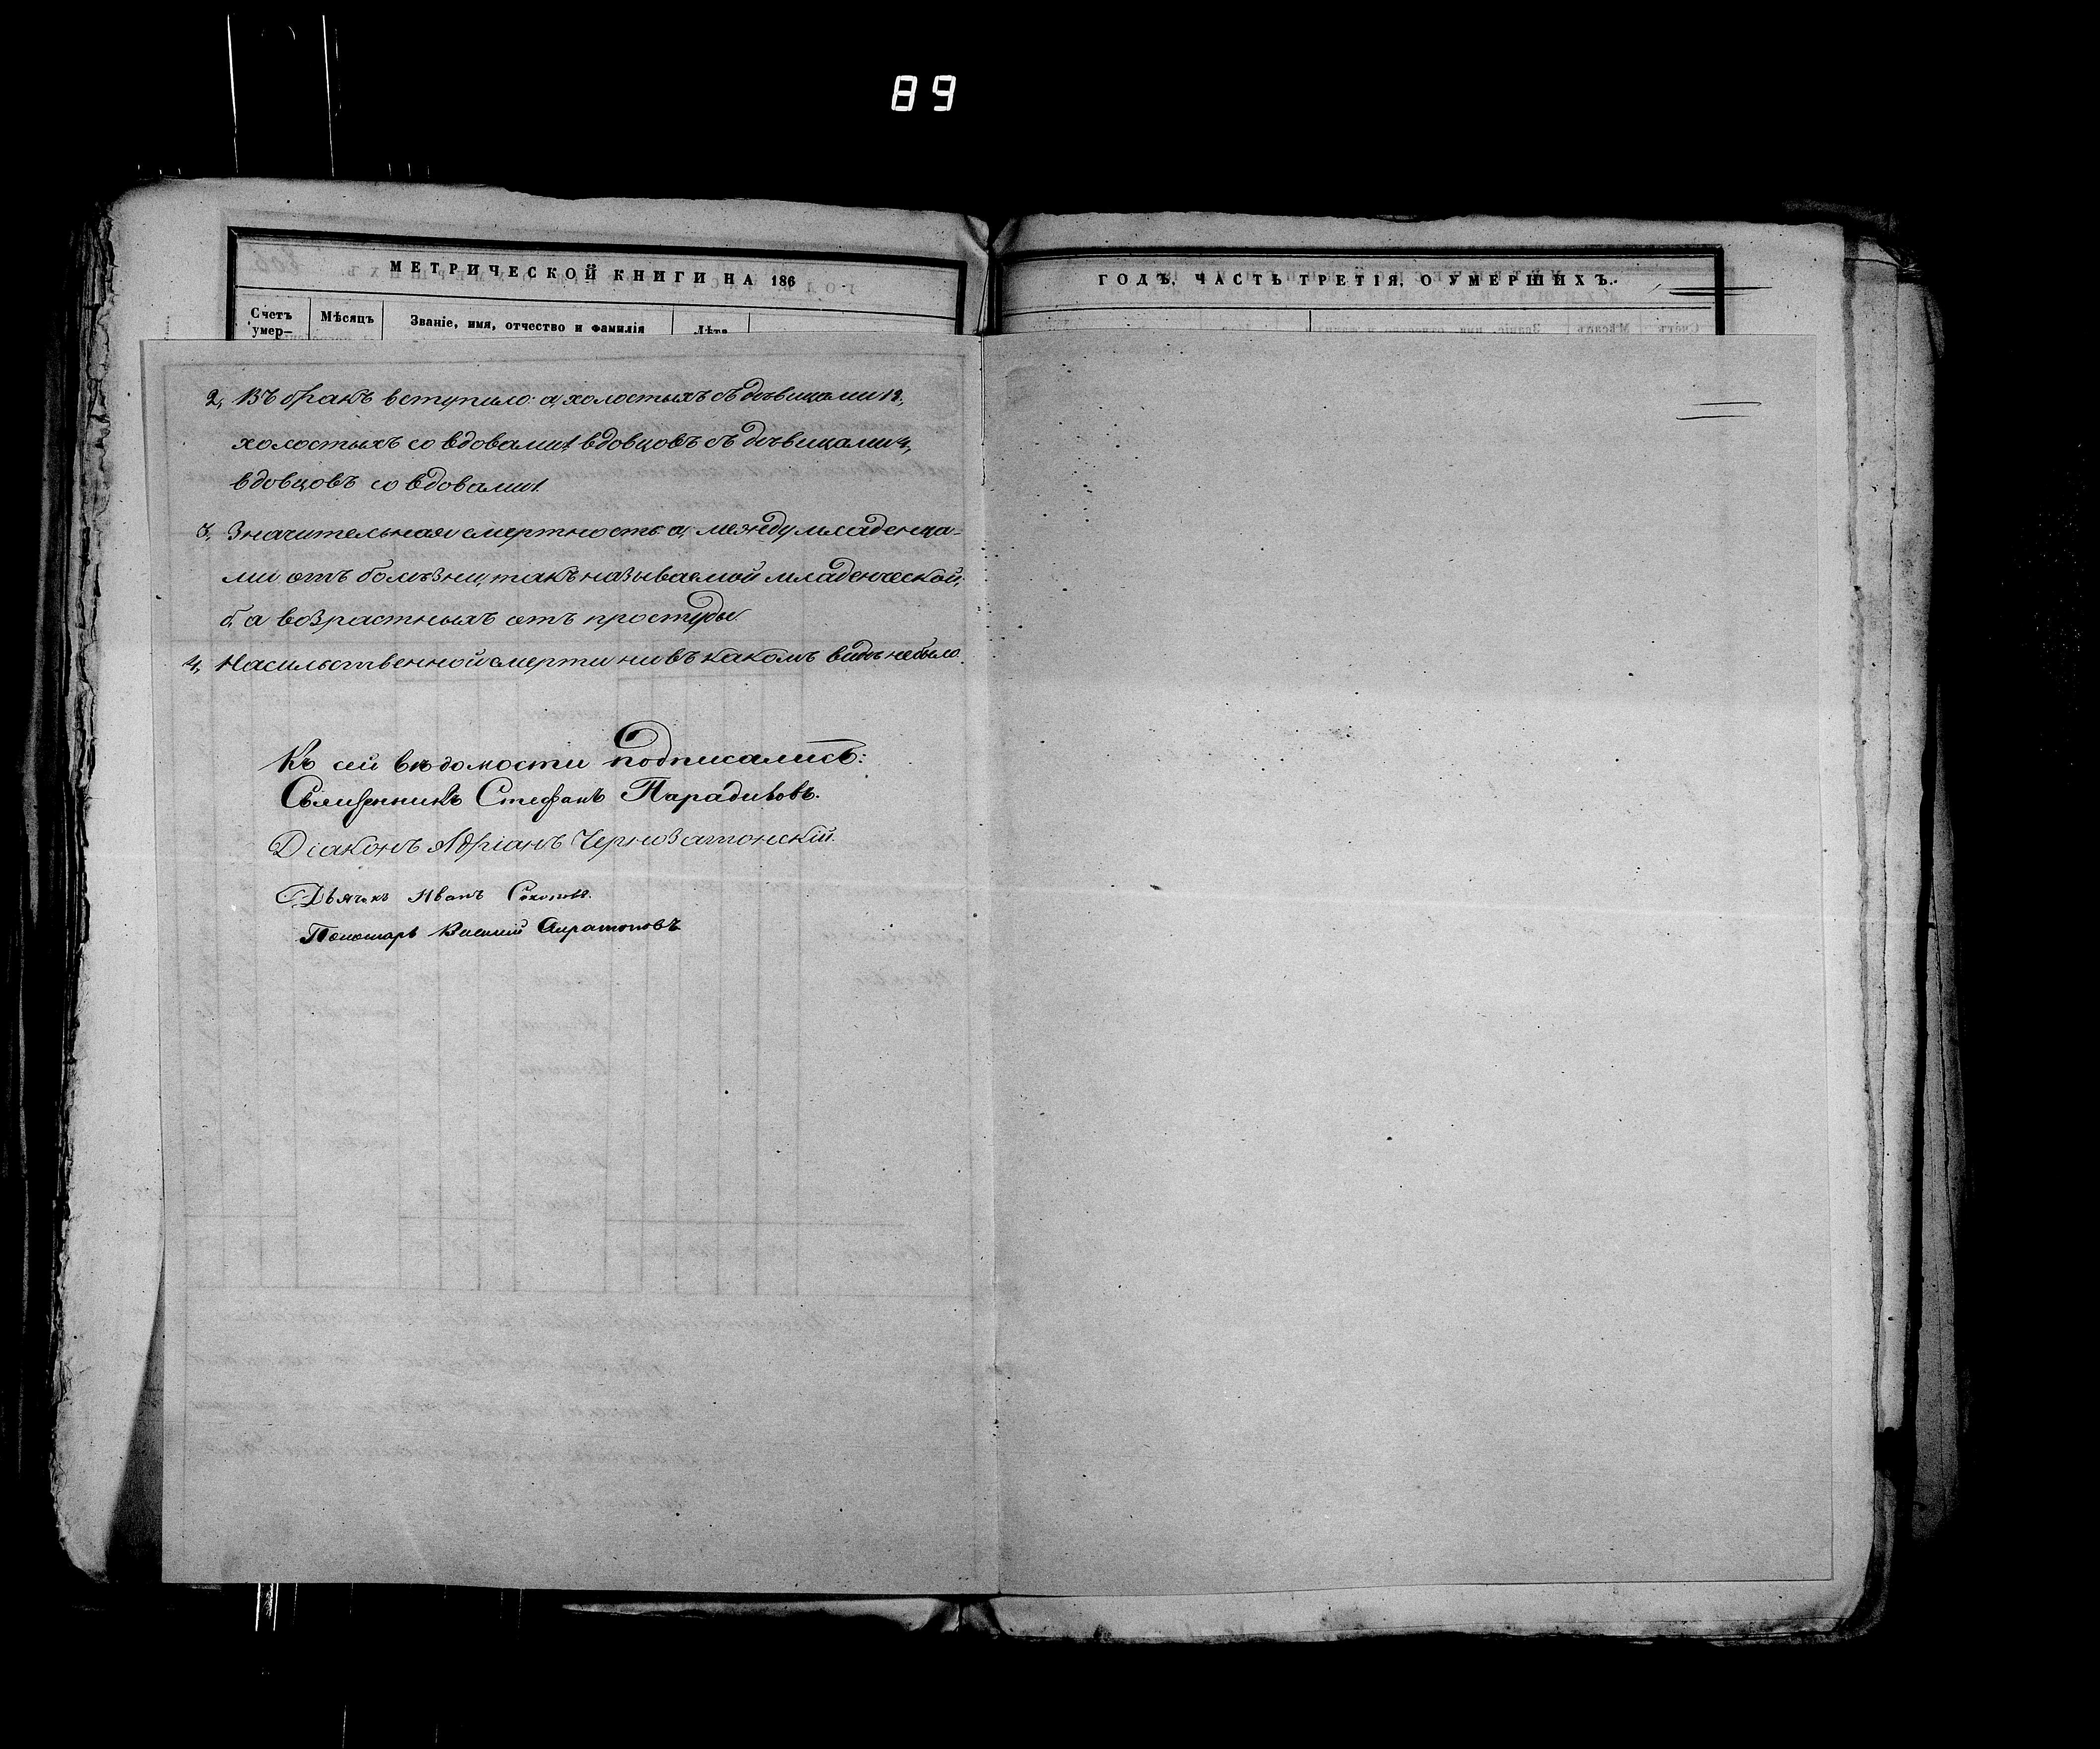 89
МЕТРИЧЕСКОЙ КНИГИ НА 186
ГОДЪ, ЧАСТЬ ТРЕТІЯ, О УМЕРШИХЪ.
Счетъ умер— Мѣсяцъ Званіе, имя, отчество и фамилія Лѣта
2, Въ бракъ вступило: а, холостыхъ съ дѣвицами 13,
холостыхъ со вдовами 1, вдовцовъ съ дѣвицами 4,
вдовцовъ со вдовами 1.
3, Значительная смертность: а, между младенца-
ми отъ болѣзни, такъ называемой младенческой;
б, а возрастныхъ отъ простуды.
4, Насильственной смерти ни въ какомъ видѣ не было.
Къ сей вѣдомости подписались:
Священникъ Стефанъ Парадизовъ.
Діаконъ Адріанъ Чернозатонскій.
Дьячекъ Иванъ
Пономарь Василий